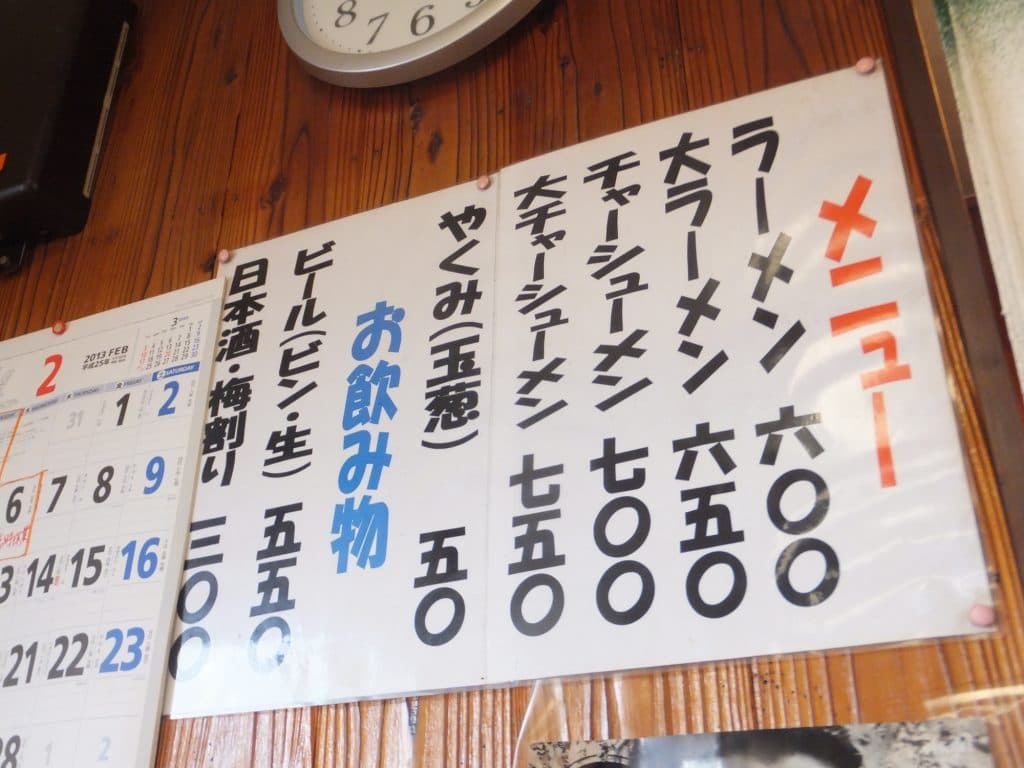 メニュー
ラーメン 六〇〇
大ラーメン 六五〇
チャーシューメン 七〇〇
大チャーシューメン 七五〇
やくみ(玉葱) 五〇
お飲み物
ビール(ビン・生) 五五〇
日本酒・梅割り 三〇〇
8 7 6
2
2013 FEB
平成25年
3
FRIDAY
SATURDAY
31 1 2
6 7 8 9
14 15 16
21 22 23
28 1 2